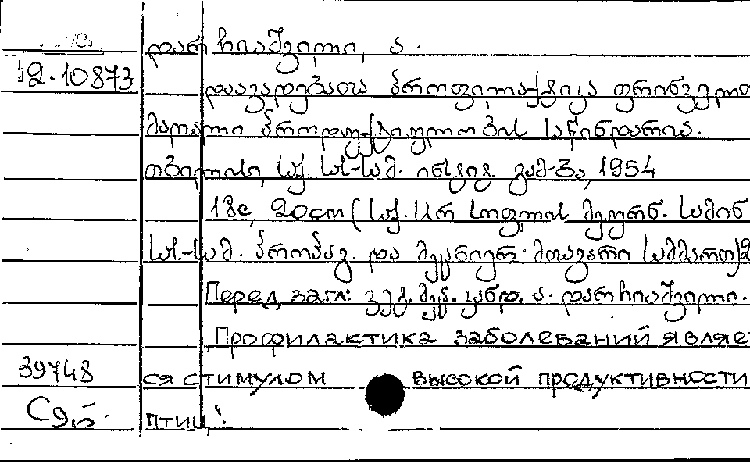 დარჩიაშვილი, ა.
12.10873
დაავადებათა პროფილაქტიკა ფრინველთა
მაღალი პროდუქტიულობის საწინდარია.
თბილისი, საქ. სას-სამ. ინსტიტ. გამ-ბა, 1954
18c, 20cm (საქ. სსრ სოფლის მეურნ. სამინ
სას-სამ. პროპაგ. და მეცნიერ. მთავარი სამმართ)
Перед загл: ვეტ. მეც. კანდ. ა. დარჩიაშვილი.
Профилактика заболеваний являе
39748
ся стимулом высокой продуктивности
птиц.